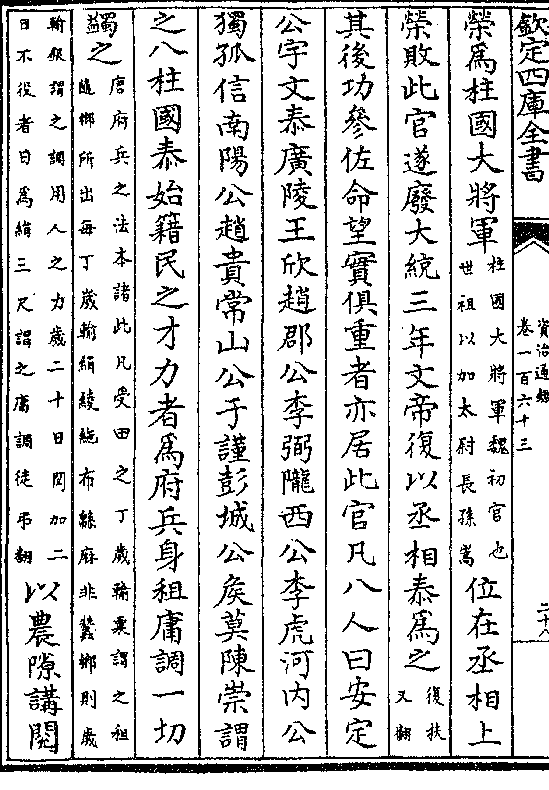 欽定四庫全書
資治通鑑
卷一百六十三
二十八
榮爲柱國大將軍
柱國大將軍魏初官也
世祖以加太尉長孫嵩
位在丞相上
榮敗此官遂廢大統三年文帝復以丞相泰爲之
復扶
又翻
其後功參佐命望實俱重者亦居此官凡八人曰安定
公宇文泰廣陵王欣趙郡公李弼隴西公李虎河内公
獨孤信南陽公趙貴常山公于謹彭城公侯莫陳崇謂
之八柱國泰始籍民之才力者爲府兵身租庸調一切
蠲之
唐府兵之法本諸此凡受田之丁歲輸粟謂之租
隨鄉所出每丁歲輸絹綾絁布緜麻非蠶鄉則歲
輸銀謂之調用人之力歲二十日閏加二
日不役者日爲絹三尺謂之庸調徒弔翻
以農隙講閱